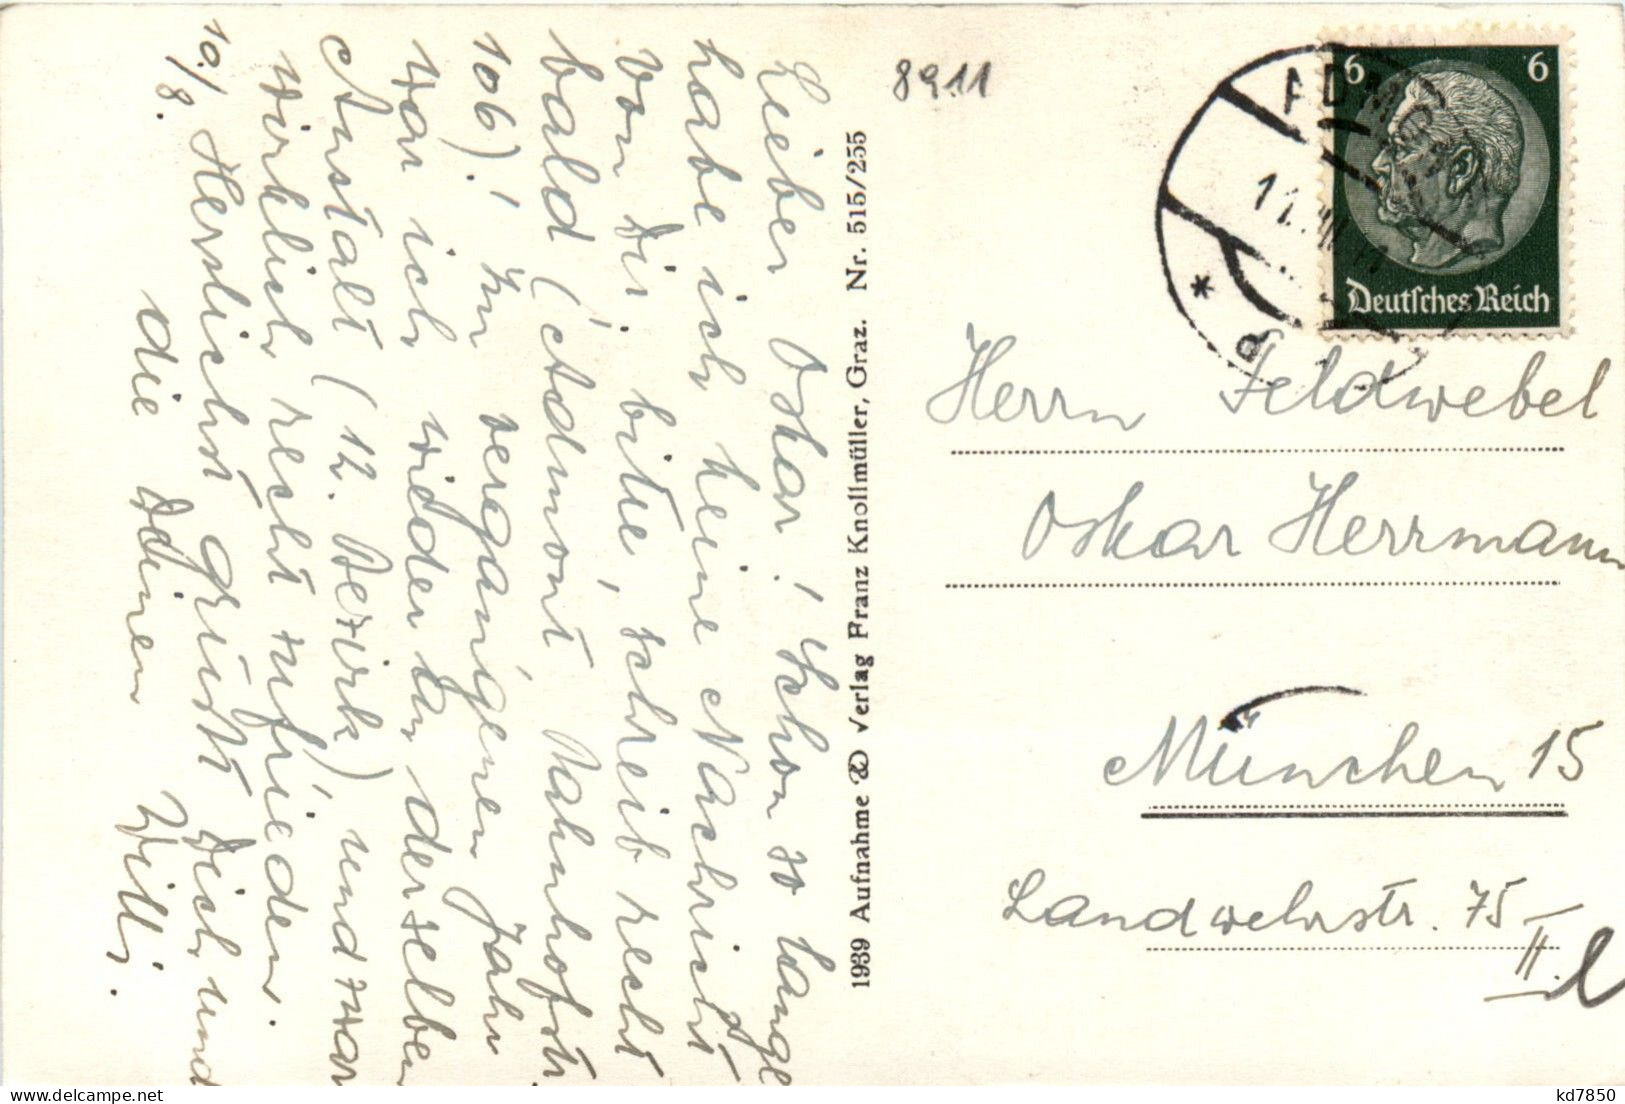 Lieber Oskar! Schon so lange
habe ich keine Nachricht
von Dir; bitte, schreib recht
bald (Admont Bahnhofstr.
106)! Im vergangenen Jahr
war ich wieder an derselben
Anstalt (12. Bezirk), und zwar
wirklich recht zufrieden.
10./8. Herzlichst grüßt Dich und
die Deinen Willi.
1939 Aufnahme & Verlag Franz Knollmüller, Graz. Nr. 515/255
8911
6 6
Deutsches Reich
Herrn Feldwebel
Oskar Herrmann
München 15
Landwehrstr. 75
II. l
kd7850